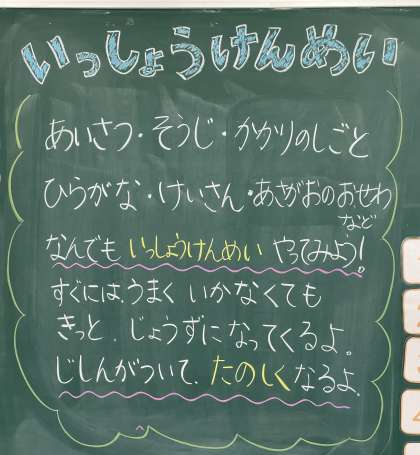 いっしょうけんめい
あいさつ・そうじ・かかりのしごと
ひらがな・けいさん・あさがおのおせわ
など
なんでも いっしょうけんめい やってみよう!
すぐには、うまく いかなくても
きっと、じょうずに なってくるよ。
じしんがついて、たのしく なるよ。